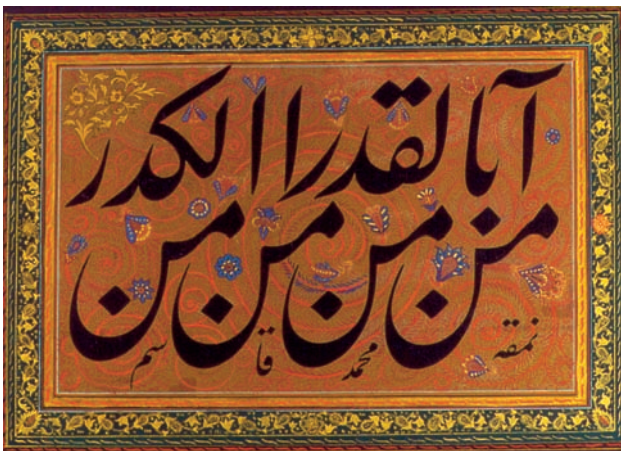 آ بالقدر ا الکدر
من من من من
نمقه محمد قاسم